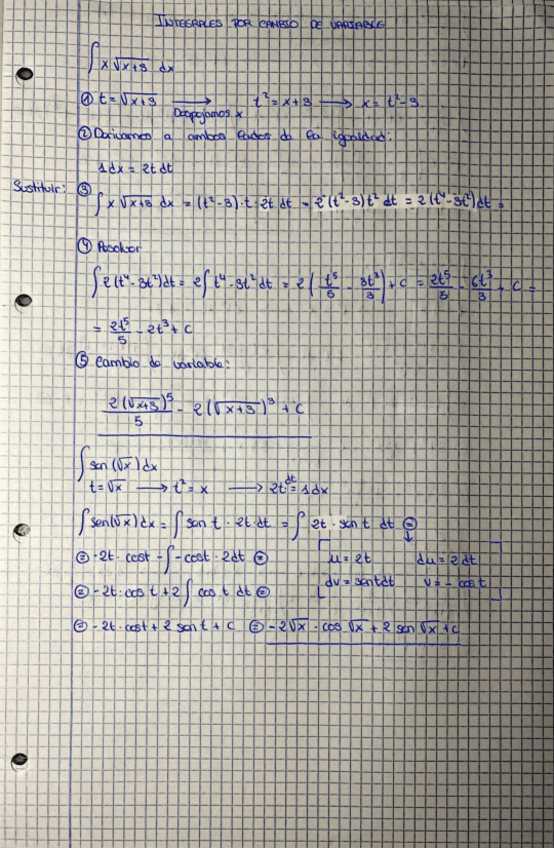 INTEGRALES POR CAMBIO DE VARIABLE
∫ x √(x+3) dx
① t = √(x+3) ⟶ Despejamos x t² = x+3 ⟶ x = t²-3
② Derivamos a ambos lados de la igualdad:
1dx = 2t dt
Sustituir: ③ ∫ x √(x+3) dx = (t²-3)·t·2t dt = 2(t²-3)t² dt = 2(t⁴-3t²)dt =
④ Resolver
∫ 2(t⁴-3t²)dt = 2∫ t⁴-3t² dt = 2(t⁵/5 - 3t³/3) + C = 2t⁵/5 - 6t³/3 + C =
= 2t⁵/5 - 2t³ + C
⑤ Cambio de variable:
2(√(x+3))⁵/5 - 2(√(x+3))³ + C
∫ sen(√x) dx
t = √x ⟶ t² = x ⟶ 2t dt = 1dx
∫ sen(√x) dx = ∫ sen t · 2t dt = ∫ 2t · sen t dt =
= -2t · cost - ∫ -cost · 2dt = u = 2t du = 2 dt
= -2t · cos t + 2∫ cos t dt = dv = sent dt v = - cos t
= -2t · cost + 2 sen t + C = -2√x · cos √x + 2 sen √x + C